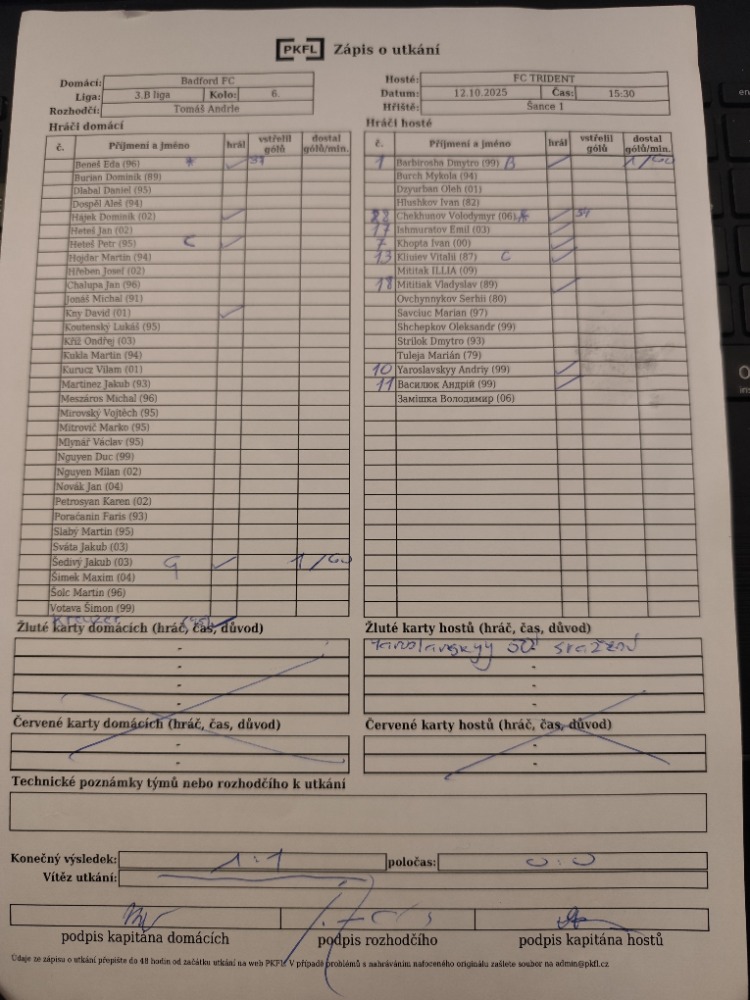 PKFL Zápis o utkání
Domácí: Badford FC
Liga: 3.B liga Kolo: 6.
Rozhodčí: Tomáš Andrle
Hosté: FC TRIDENT
Datum: 12.10.2025 Čas: 15:30
Hřiště: Šance 1
Hráči domácí
č. Příjmení a jméno hrál vstřelil gólů dostal gólů/min.
Beneš Eda (96)
Burian Dominik (89)
Dlabal Daniel (95)
Dospěl Aleš (94)
Hájek Dominik (02)
Heteš Jan (02)
Heteš Petr (95) C
Hojdar Martin (94)
Hřeben Josef (02)
Chalupa Jan (96)
Jonáš Michal (91)
Kny David (01)
Koutenský Lukáš (95)
Kříž Ondřej (03)
Kukla Martin (94)
Kurucz Vilam (01)
Martinez Jakub (93)
Meszáros Michal (96)
Mirovský Vojtěch (95)
Mitrovič Marko (95)
Mlynář Václav (95)
Nguyen Duc (99)
Nguyen Milan (02)
Novák Jan (04)
Petrosyan Karen (02)
Poračanin Faris (93)
Slabý Martin (95)
Sváta Jakub (03)
Šedivý Jakub (03) G 1/60
Šimek Maxim (04)
Šolc Martin (96)
Votava Šimon (99)
Hráči hosté
č. Příjmení a jméno hrál vstřelil gólů dostal gólů/min.
1 Barbirosha Dmytro (99) B 1/60
Burch Mykola (94)
Dzyurban Oleh (01)
Hlushkov Ivan (82)
Chekhunov Volodymyr (06)
17 Ishmuratov Emil (03)
7 Khopta Ivan (00)
13 Kliuiev Vitalii (87) C
Mititak ILLIA (09)
18 Mititiak Vladyslav (89)
Ovchynnykov Serhii (80)
Savciuc Marian (97)
Shchepkov Oleksandr (99)
Strilok Dmytro (93)
Tuleja Marián (79)
10 Yaroslavskyy Andriy (99)
11 Василюк Андрій (99)
Замішка Володимир (06)
Žluté karty domácích (hráč, čas, důvod)
Červené karty domácích (hráč, čas, důvod)
Žluté karty hostů (hráč, čas, důvod)
Yaroslavskyy sražení
Červené karty hostů (hráč, čas, důvod)
Technické poznámky týmů nebo rozhodčího k utkání
Konečný výsledek: 1:1 poločas: 0:0
Vítěz utkání:
podpis kapitána domácích podpis rozhodčího podpis kapitána hostů
Údaje ze zápisu o utkání přepište do 48 hodin od začátku utkání na web PKFL. V případě problémů s nahráváním nafoceného originálu zašlete soubor na admin@pkfl.cz